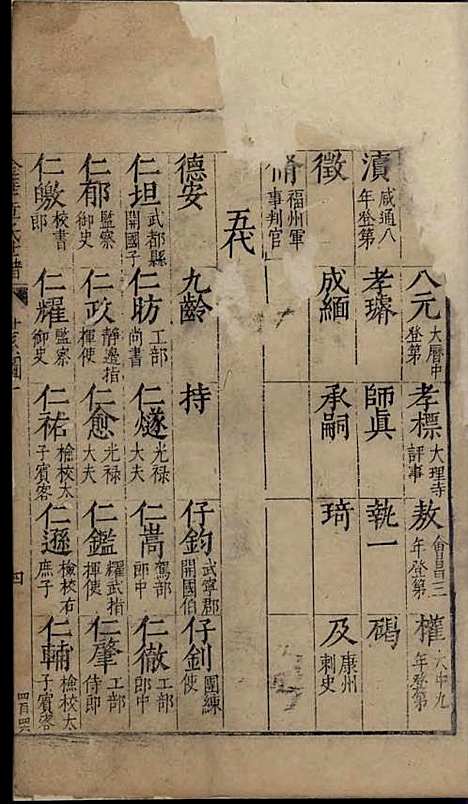 八元大曆中登第 孝標大理寺評事 敖會昌三年登第 權大中九年登第
瀆咸通八年登第 孝璿 師真 執一 碣
徵 成緬 承嗣 琦 及康州刺史
脩福州軍事判官
五代
德安 九齡 持 仔鈞武寧郡開國伯 仔釗團練使
仁坦武都縣開國子 仁昉工部尚書 仁燧光祿大夫 仁嵩駕部郎中 仁徹工部郎中
仁郁監察御史 仁政靜邊指揮使 仁愈光祿大夫 仁鑑耀武指揮使 仁肇工部侍郎
仁皦校書郎 仁耀監察御史 仁祐檢校太子賓客 仁遜檢校右庶子 仁輔檢校太子賓客
四